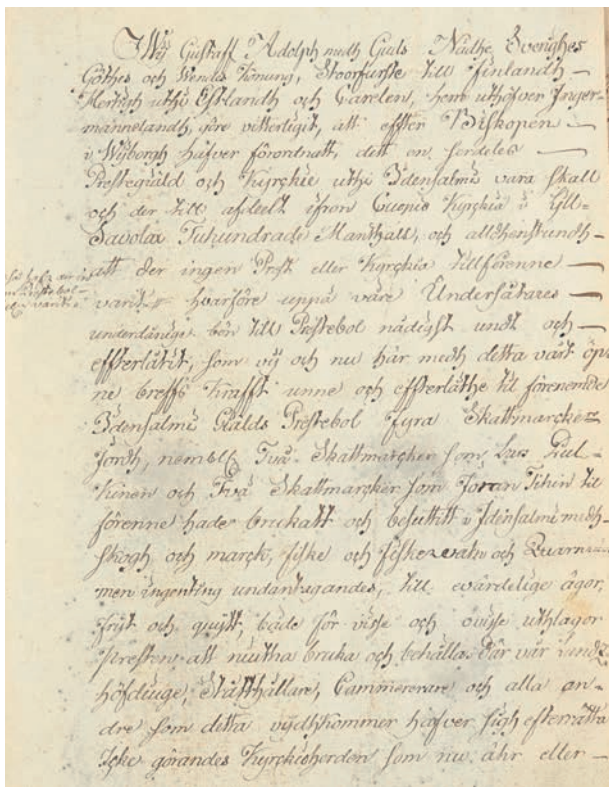 Wij Gustaff Adolph medh Guds Nådhe Sverighes
Göthes och Wendes Konung, Stoorfurste till Finlandh
Hertigh uthi Estlandh och Carelen, herre uthöfver Inger-
mannelandh, göre vitterligit, att effter Biskopen
i Wijborgh hafver förordnatt, dett en serdeles
Prestegiäld och Kyrckie uthi Idensalmi vara skall
och der till afdeelt ifron Cuopio Kyrckia i
Savolax Tuhundrade Manthall, och alldenstundh
att der ingen Prest eller Kyrckio tillförenne
varit hvarföre uppå våre Undersåtares
underdånige bön till Prestebol nådigst undt och
effterlåtit, som vij och nu här medh detta vårt öpn
ne breffs krafft unne och effterlåthe til förenemde
Idensalmi Giälds Prestebol fyra Skattmarcker
Jordh, nembl. Två Skattmarcker som Lars
kinen och Två Skattmarcker som Jöran Tihin til
förenne hade bruckatt och besuttitt i Idensalmi medh
skogh och marck, fiske och fiskevatn och
men ingenting undantagandes, till ewärdelige ägor,
frijt och quijtt, både för visse och ovisse uthlagor
Presten att niutha bruka och behålla. Där vår
höfdinge, Ståthållare, Cammererare och alla an-
dre som detta vijdhkommer hafver sigh efterrätta
Icke görandes Kyrckioherden som nu ähr eller